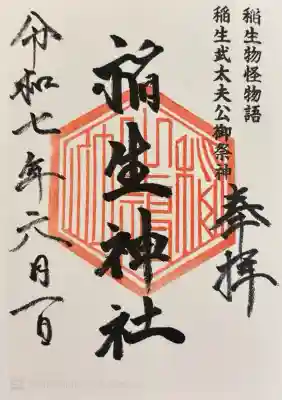 稲生物怪物語
稲生武太夫公御祭神
奉拝
稲生神社
令和七年六月一日